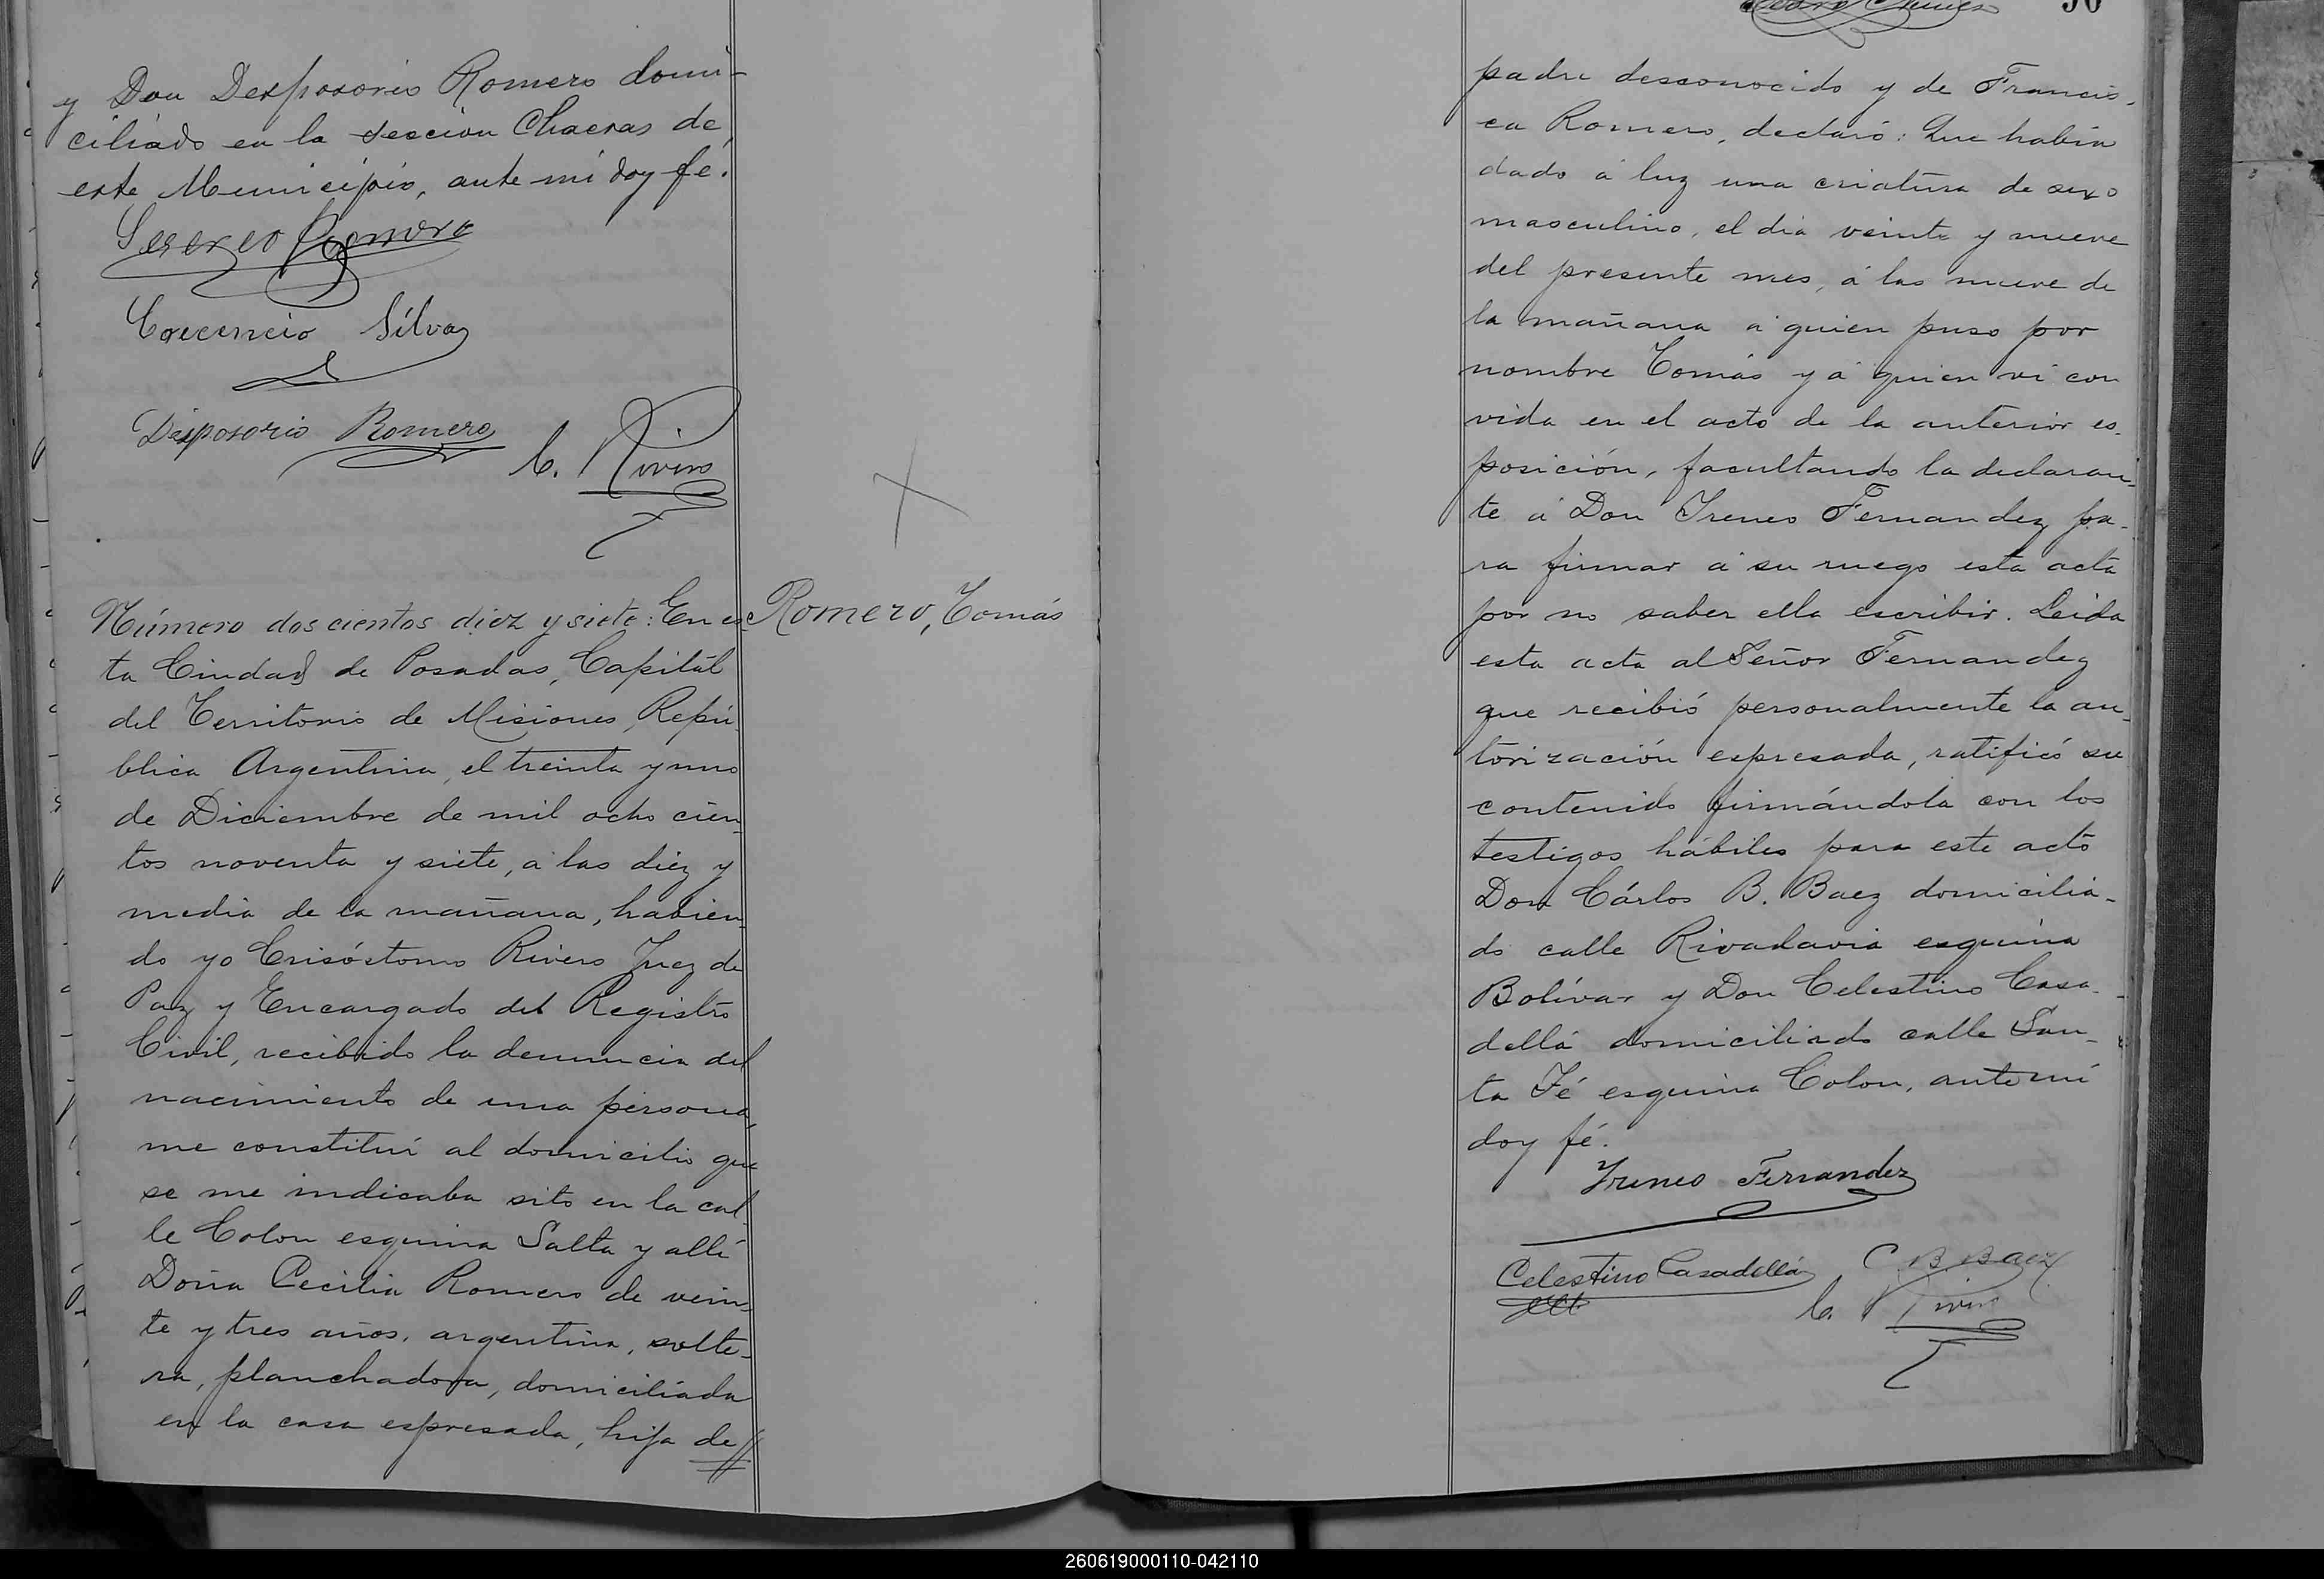 y Don Desposorio Romero domi-
ciliado en la seccion Chacras de
este Municipio, ante mi doy fé.
Romero
Crecencio Silva
Desposorio Romero
C. Rivero
Número dos cientos diez y siete: En es-
Romero, Tomás
ta Ciudad de Posadas, Capitál
del Territorio de Misiones, Repú-
blica Argentina, el treinta y uno
de Diciembre de mil ocho cien-
tos noventa y siete, a las diez y
media de la mañana, habien-
do yo Crisóstomo Rivero Juez de
Paz y Encargado del Registro
Civil, recibido la denuncia del
nacimiento de una persona,
me constituí al domicilio que
se me indicaba sito en la cal-
le Colon esquina Salta y allí
Doña Cecilia Romero de vein-
te y tres años, argentina, solte-
ra, planchadora, domiciliada
en la casa espresada, hija de
padre desconocido y de Francis-
ca Romero, declaró: Que había
dado á luz una criatura de sexo
masculino, el dia veinte y nueve
del presente mes, á las nueve de
la mañana á quien puso por
nombre Tomás y á quien ví con
vida en el acto de la anterior es-
posición, facultando la declaran-
te á Don Ireneo Fernandez pa-
ra firmar á su ruego esta acta
por no saber ella escribir. Leida
esta acta al Señor Fernandez
que recibió personalmente la au-
torización espresada, ratificó su
contenido firmándola con los
testigos hábiles para este acto
Don Cárlos B. Baez domicilia-
do calle Rivadavia esquina
Bolívar y Don Celestino Casa-
dellá domiciliado calle San-
ta Fé esquina Colon, ante mi
doy fé.
Ireneo Fernandez
Celestino Casadellá C B Baez
C. Rivero
260619000110-042110